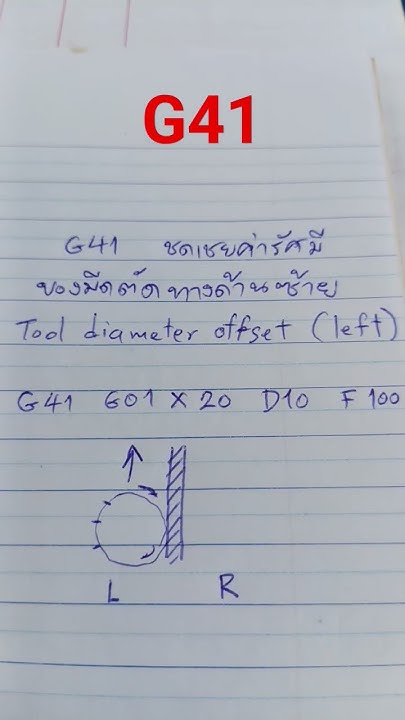 G41
G41 ชดเชยค่ารัศมี
ของมีดตัดทางด้านซ้าย
Tool diameter offset (left)
G41 G01 X 20 D10 F 100
L R